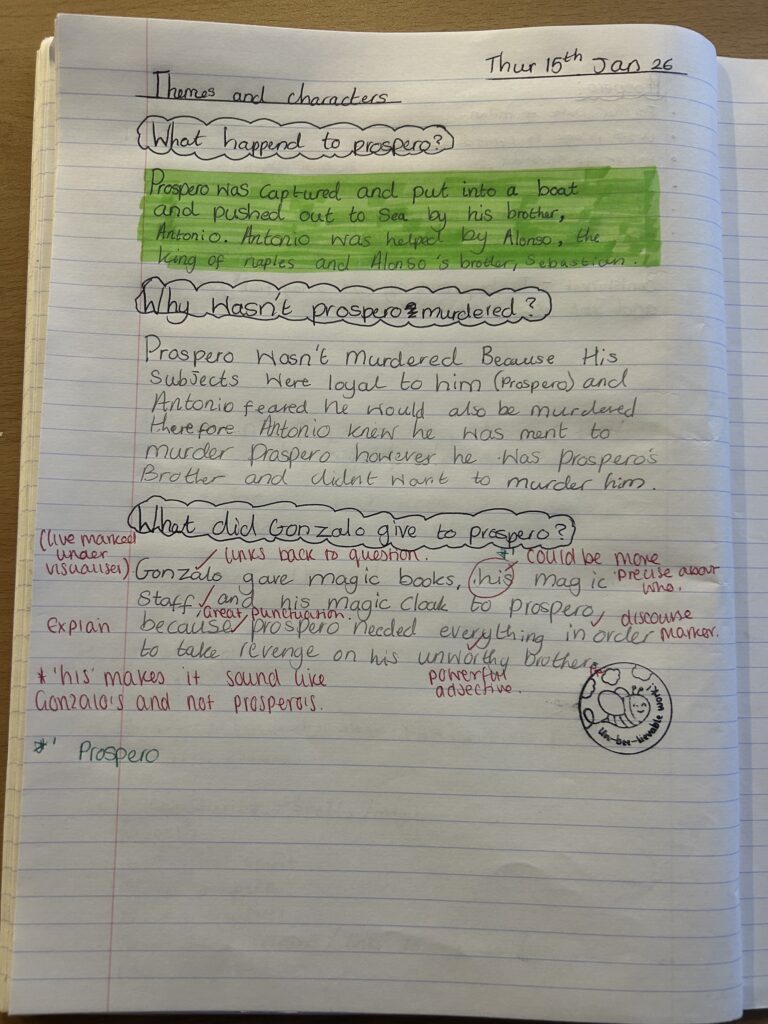 Thur 15th Jan 26
Themes and characters
What happend to prospero?
Prospero was captured and put into a boat
and pushed out to sea by his brother,
Antonio. Antonio was helped by Alonso, the
king of naples and Alonso's broter, Sebastian.
Why wasn't prospero murdered?
Prospero wasn't murdered Because His
Subjects were loyal to him (Prospero) and
Antonio feared he would also be murdered
therefore Antonio knew he was ment to
murder Prospero however he was prospero's
Brother and didnt want to murder him.
What did Gonzalo give to prospero?
(live marked
under
visualiser)
links back to question.
*' could be more
precise about
who.
Gonzalo gave magic books, his magic
Staff, and his magic cloak to prospero,
Great punctuation.
discourse
marker.
Explain
because prospero needed everything in order
to take revenge on his unworthy brother
powerful
adjective.
* 'his' makes it sound like
Gonzalo's and not prospero's.
Un-bee-lievable work!
*' Prospero